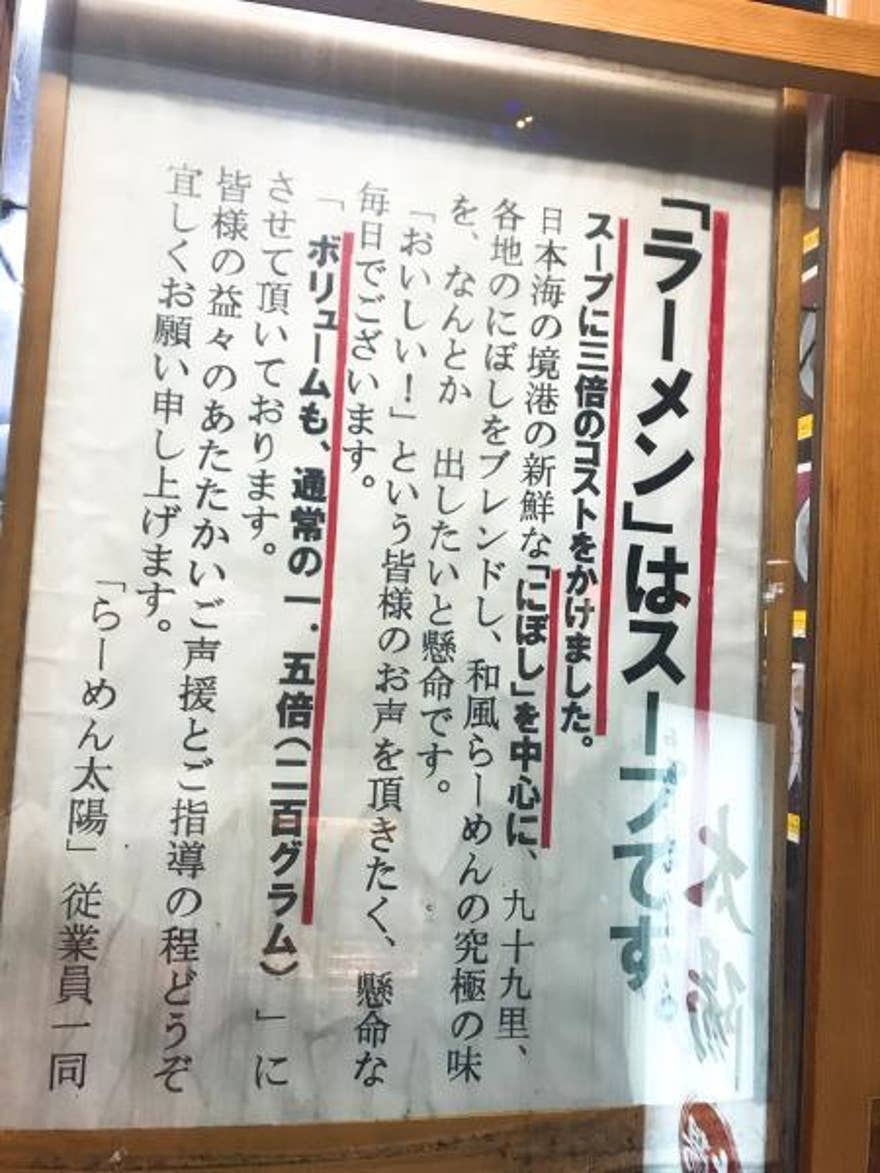 「ラーメン」はスープです
スープに三倍のコストをかけました。
日本海の境港の新鮮な「にぼし」を中心に、九十九里、
各地のにぼしをブレンドし、和風らーめんの究極の味
を、なんとか 出したいと懸命です。
「おいしい！」という皆様のお声を頂きたく、懸命な
毎日でございます。
「ボリュームも、通常の一．五倍（二百グラム）」に
させて頂いております。
皆様の益々のあたたかいご声援とご指導の程どうぞ
宜しくお願い申し上げます。
「らーめん太陽」従業員一同